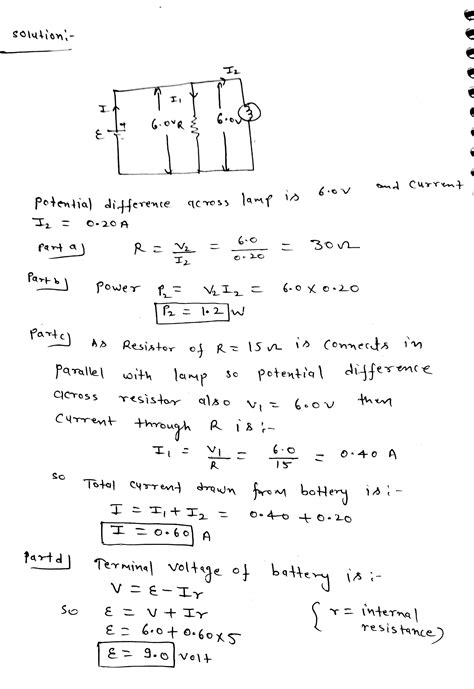 solution:-
I2
I
I1
ε
6.0V
R
6.0V
Potential difference across lamp is 6.0V and current
I2 = 0.20A
Part a) R = V2/I2 = 6.0/0.20 = 30Ω
Part b) Power P2 = V2I2 = 6.0 x 0.20
P2 = 1.2 W
Part c) As Resistor of R = 15Ω is connects in
parallel with lamp so potential difference
across resistor also V1 = 6.0V then
current through R is :-
I1 = V1/R = 6.0/15 = 0.40 A
so Total current drawn from battery is :-
I = I1 + I2 = 0.40 + 0.20
I = 0.60 A
Part d) Terminal voltage of battery is :-
V = ε - Ir
So ε = V + Ir { r = internal
ε = 6.0 + 0.60x5 resistance}
ε = 9.0 volt